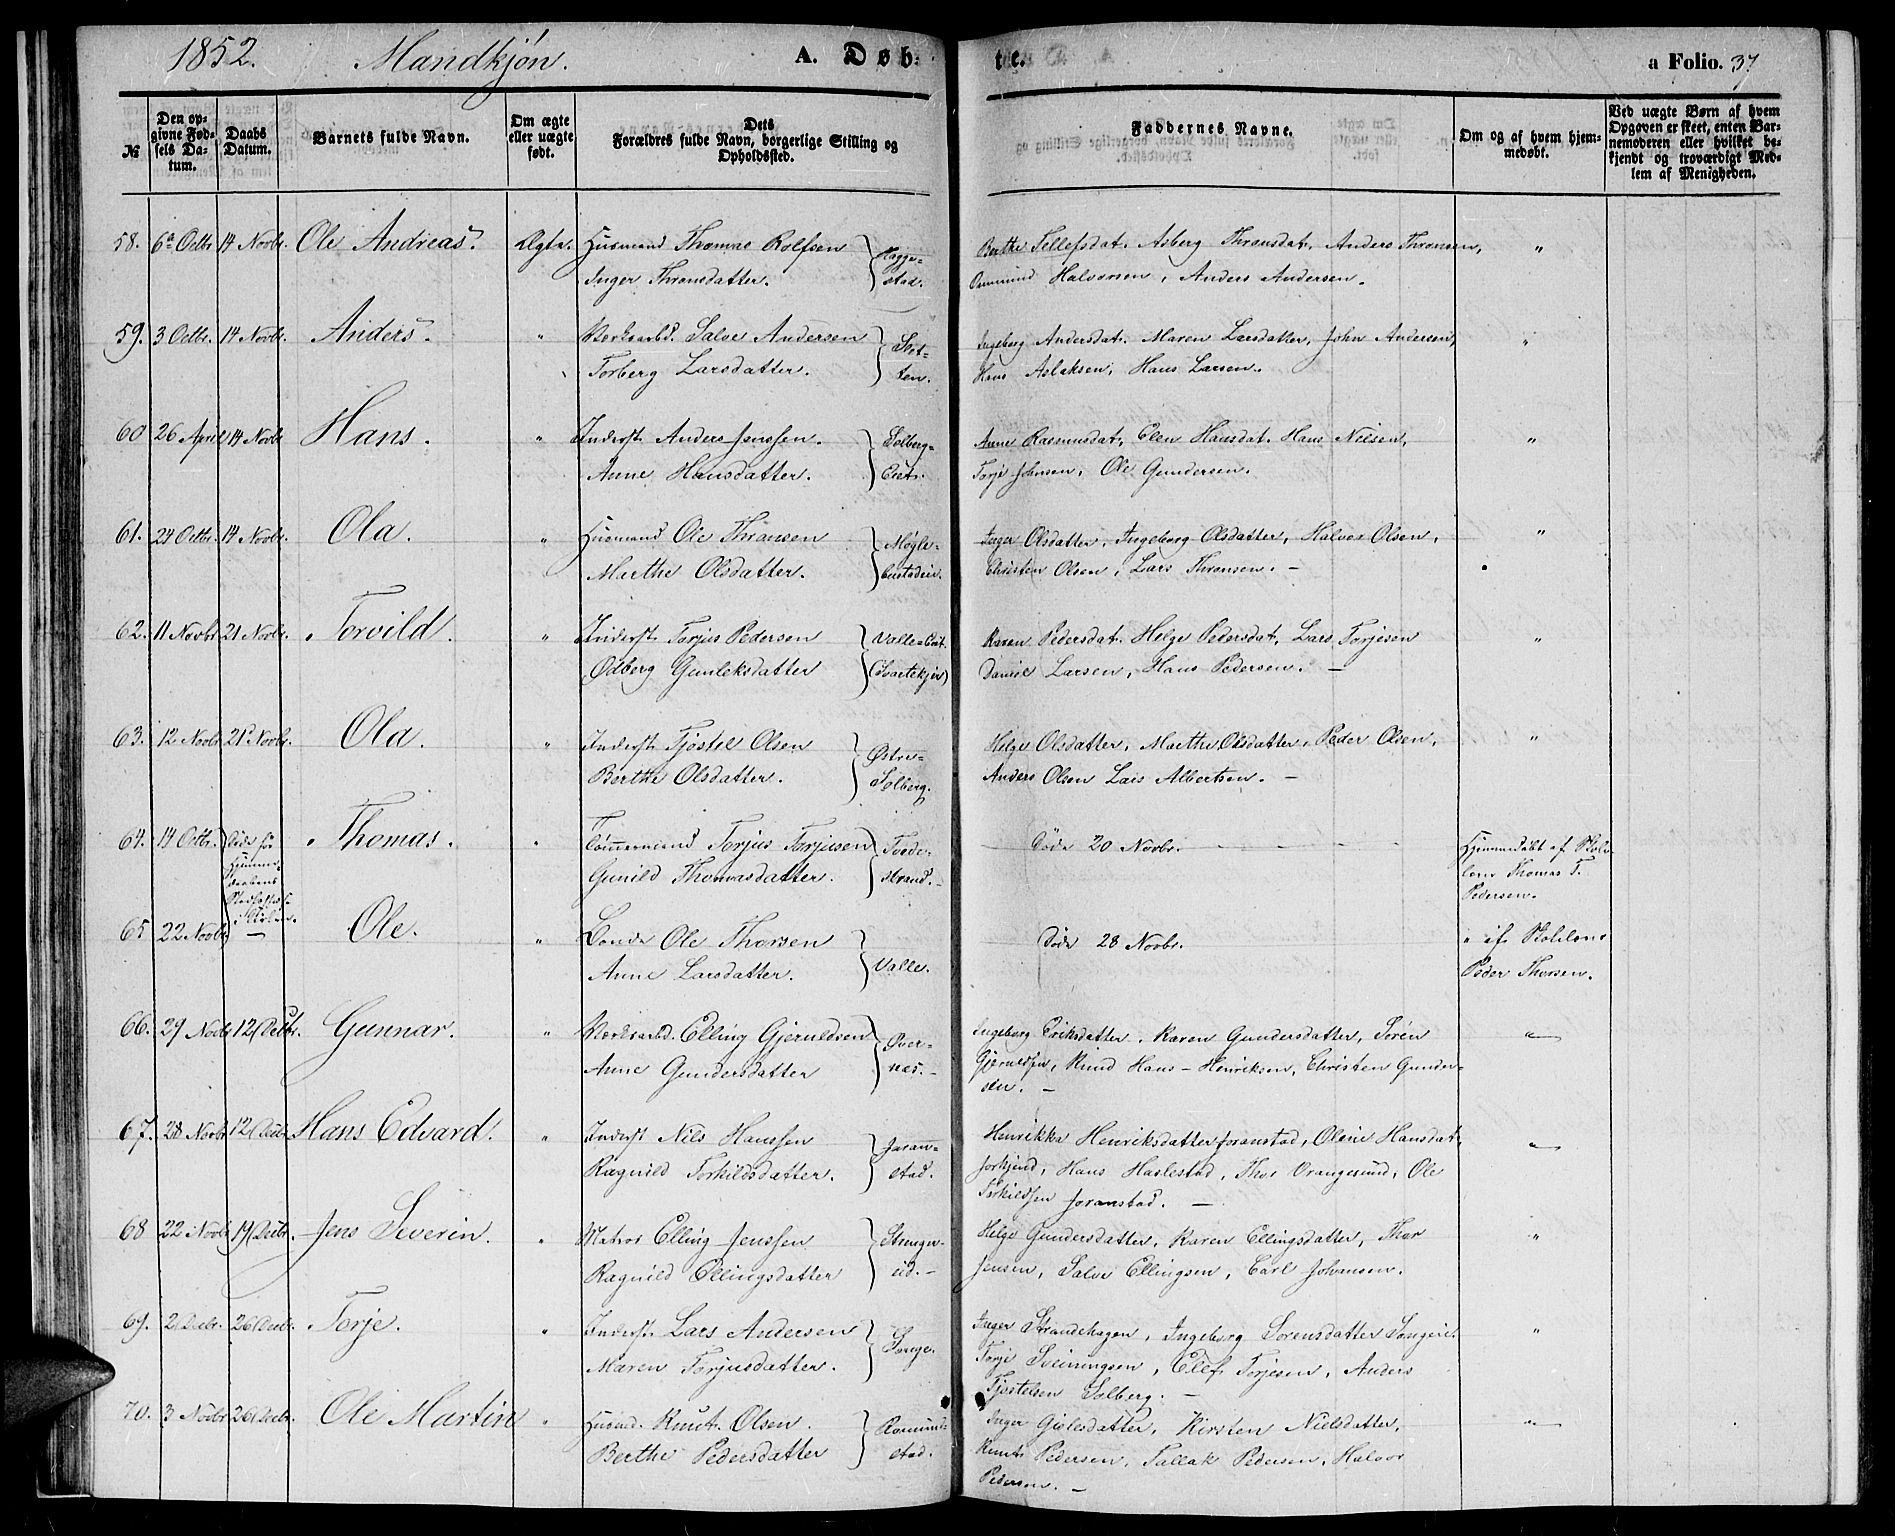 1852. Mandkjön. A. Døb- te. a Folio. 37
№
Den op-
givne Fød-
sels Da-
tum.
Daabs
Datum.
Barnets fulde Navn.
Om ægte
eller uægte
født.
Dets
Forældres fulde Navn, borgerlige Stilling og
Opholdssted.
Faddernes Navne.
Om og af hvem hjem-
medøbt.
Ved uægte Børn af hvem
Opgaven er skeet, enten Bar-
nemoderen eller hvilket be-
kjendt og troværdigt Med-
lem af Menigheden.
58. 6te Octbr. 14 Novbr. Ole Andreas. Ægte. Husmand Thomas Rolfsen
Inger Thronsdatter.
Hagge-
stad.
Berthe Tellefsdat. Asberg Thronsdat, Anders Thronsen, "
Ommund Halvorsen, Anders Andersen.
59. 3 Octbr. 14 Novbr. Anders. " Værksarbd. Salve Andersen
Torberg Larsdatter.
Slot-
ten.
Ingeborg Andersdat. Maren Larsdatter, John Andersen, "
Hans Aslaksen, Hans Larsen.
60 26 April 14 Novbr Hans. " Inderst. Anders Jenssen.
Anne Hansdatter.
Solberg-
Eiet.
Anne Rasmusdat, Elen Hansdat. Hans Nielsen, "
Torje Johnsen, Ole Gundersen.
61. 24 Octbr. 14 Novbr. Ola. " Husmand Ole Thronsen
Marthe Olsdatter.
Møgle-
bustadeie.
Inger Olsdatter, Ingeborg Olsdatter, Halvor Olsen, "
Christen Olsen, Lars Thronsen. —
62. 11 Novbr 21 Novbr. Torvild. " Inderst. Torjus Pedersen
Odberg Gunleksdatter
Valle-Eiet.
(Svartekjær)
Karen Pedersdat. Helge Pedersdat, Lars Torjesen "
Daniel Larsen, Hans Pedersen. —
63. 12 Novbr 21 Novbr. Ola. " Inderst. Tjostel Olsen
Berthe Olsdatter.
Østre-
Solberg.
Helge Olsdatter, Marthe Olsdatter, Peder Olsen, "
Anders Olsen Lars Albertsen. —
64. 14 Octbr. Døde før
Hjemme-
daabens
Stadfæstelse
i Kirken.
Thomas. " Tømmermand Torjus Torjusen
Gunild Thomasdatter.
Tvede-
strand. —
Døde 20 Novbr.
Hjemmedøbt af Skole-
lærer Thomas T.
Pedersen.
65 22 Novbr — Ole. " Bonde Ole Thorsen
Anne Larsdatter.
Valle.
Døde 28 Novbr.
" af Skolelærer
Peder Thorsen.
66. 29 Novbr 12 Decbr. Gunnar. " Værksarbd. Elling Gjeruldsen
Anne Gundersdatter
Øver-
næs. —
Ingeborg Eriksdatter, Karen Gundersdatter, Sorén "
Gjeruldsen, Knud Hans-Henriksen, Christen Gunder-
sen. —
67. 28 Novbr 12 Decbr Hans Edvard. " Inderst Nils Hanssen
Ragnild Torkildsdatter.
Joran-
stad.
Henrikka Henriksdatter Joranstad, Oline Hansdat, "
Jorkjend, Hans Haslestad, Thor Vrangesund, Ole
Torkildsen Joranstad. —
68 22 Novbr 19 Decbr. Jens Severin. " Matros Elling Jenssen
Ragnild Ellingsdatter
Strenge-
eid. —
Helge Gundersdatter, Karen Ellingsdatter, Thor "
Jensen, Salve Ellingsen, Carl Johansen.
69. 2 Decbr. 26 Decbr. Torje. " Inderst. Lars Andersen
Maren Torjusdatter.
Songe.
Inger Strandehagen, Ingeborg Sorensdatter Songeie. "
Torje Sveiningsen, Ellef Torjesen, Anders
Tjostelsen Solberg. —
70. 3 Novbr 26 Decbr. Ole Martin " Husmd. Knut. Olsen.
Berthe Pedersdatter
Romund-
stad.
Inger Gjølesdatter, Kirsten Nielsdatter, "
Knut Pedersen, Tallak Pedersen, Halvor
Pedersen. —